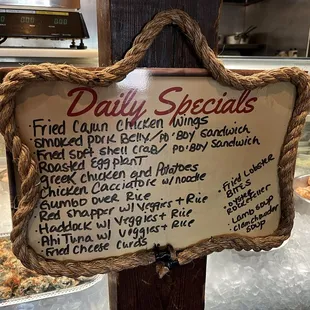 Daily Specials
Fried Cajun Chicken Wings
Smoked Pork Belly / Po'Boy Sandwich
Fried Soft shell crab / Po'Boy Sandwich
Roasted Eggplant
Greek chicken and Potatoes
Chicken Cacciatore w/ noodle
Gumbo over Rice
Red snapper w/ Veggies + Rice
Haddock w/ Veggies + Rice
Ahi Tuna w/ Veggies + Rice
Fried Cheese Curds
• Fried Lobster
Bites
• Oyster
Rockefeller
Lamb Soup
Clam chowder
Soup